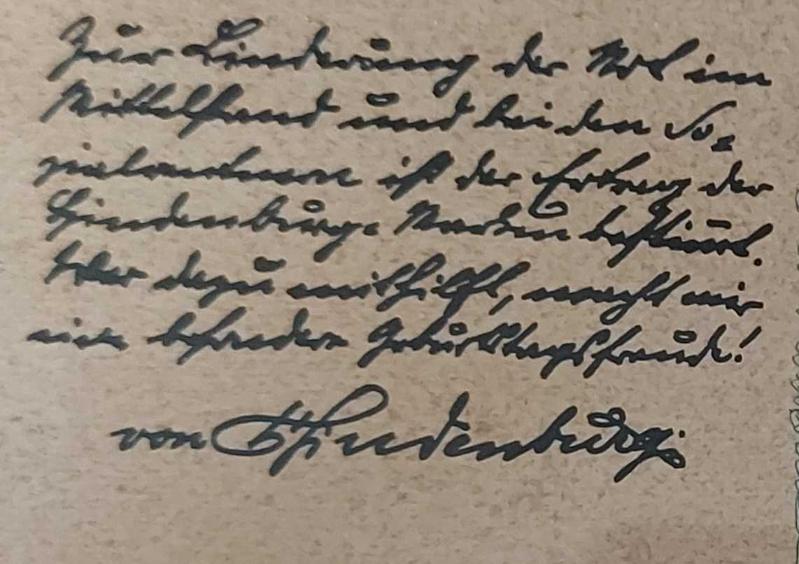 Zur Linderung der Not im
Mittelstand und bei den So-
zialrentnern ist der Ertrag der
Hindenburg-Marken bestimmt.
Wer dazu mithilft, macht mir
eine besondere Geburtstagsfreude!
von Hindenburg.